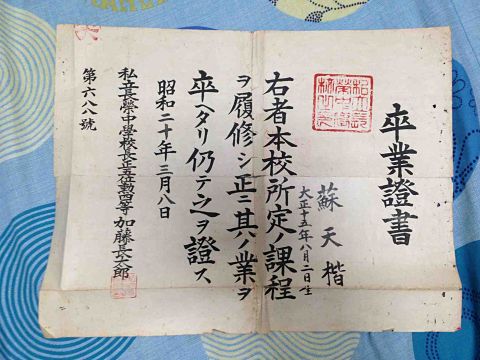 卒業證書
蘇天楷
大正十五年八月二日生
右者本校所定ノ課程
ヲ履修シ正ニ其ノ業ヲ
卒ヘタリ仍テ之ヲ證ス
昭和二十年三月八日
私立長榮中學校長正五位勲四等 加藤長太郎
第六八八號